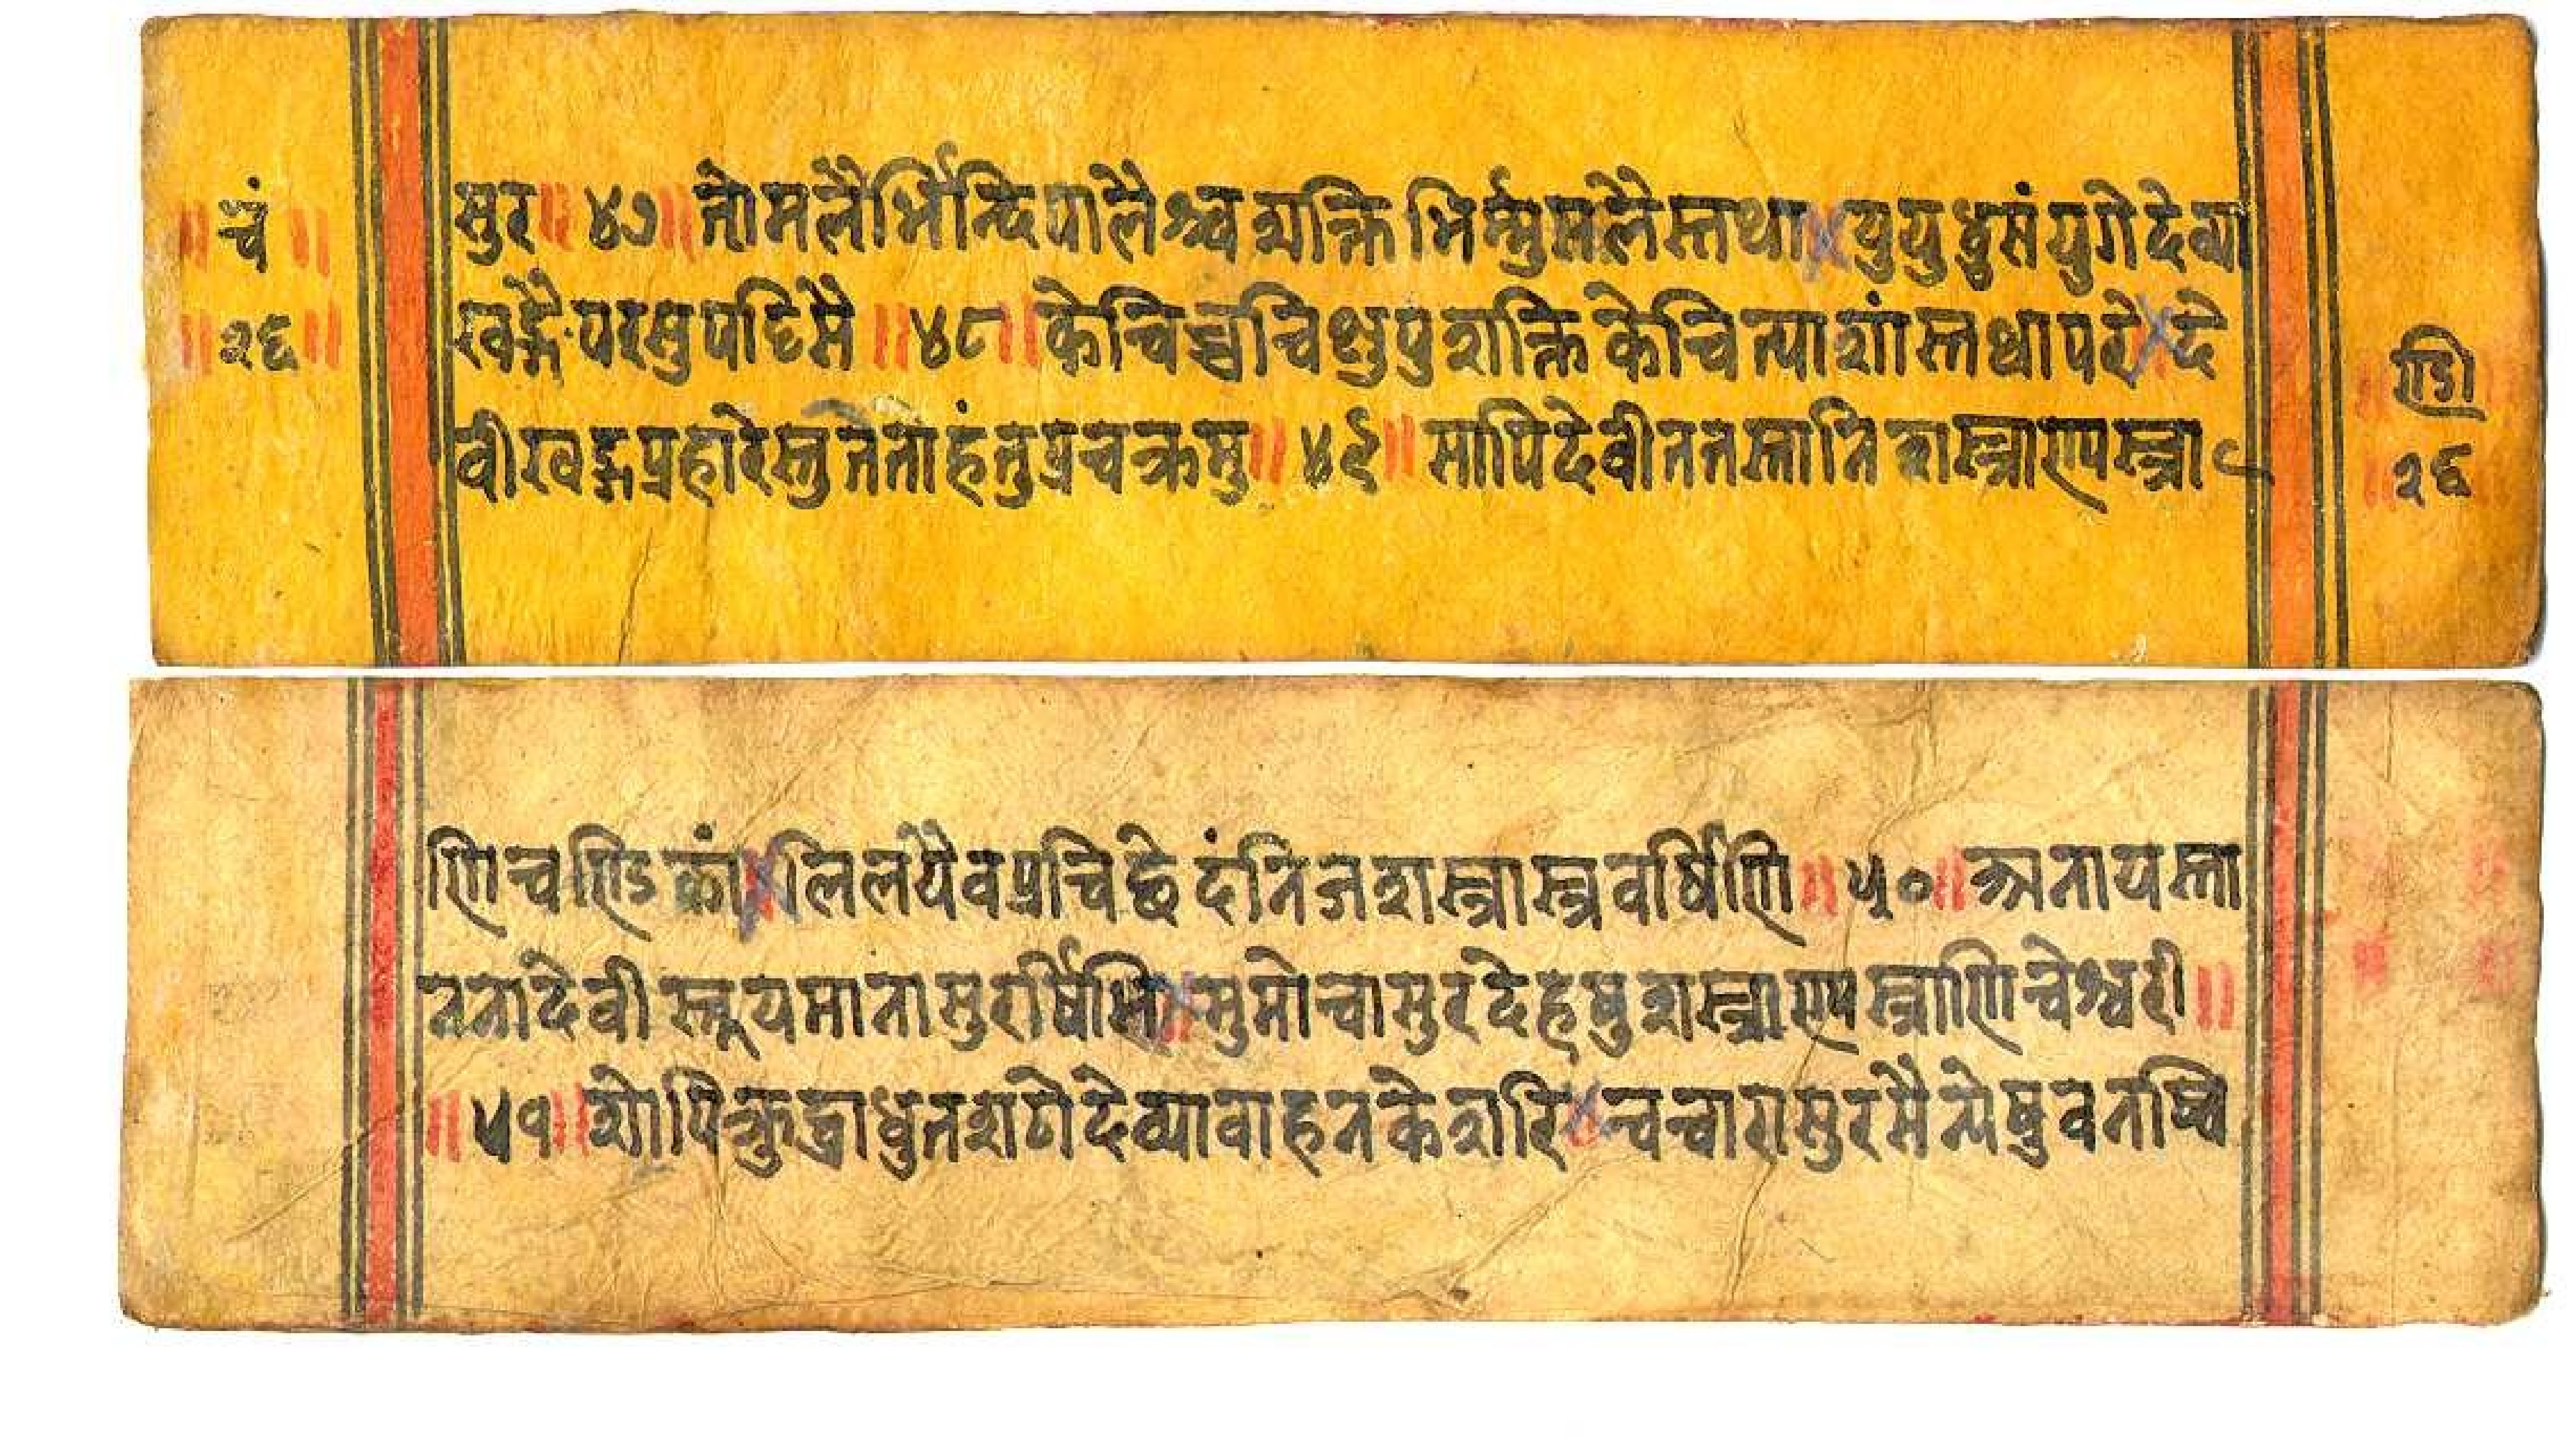 चं
२६
सुर ॥ ४७ ॥ तोमलैर्भिन्दिपालैश्च शक्तिभिर्म्मुसलैस्तथा युयुधुसंयुगे देव्या
खड्गैःपरसुपटिसै ॥ ४८ ॥ केचिच्चचिक्षुपु शक्ति केचित्पाशांस्तथापरे दे
वीखड्गप्रहारेस्तु तेतांहंतुप्रचक्रमु ॥ ४९ ॥ सापिदेवीततस्तानि शस्त्राण्यस्त्रा
ण्डि
२६
णिचण्डिकां लिलयैवप्रचिछेदंनिजशस्त्रास्त्रवर्षिणि ॥ ५० ॥ अनायस्ता
ननादेवी स्तूयमानासुरर्षिभि मुमोचासुरदेहषु शस्त्राण्यस्त्राणिचेश्वरी ॥
॥ ५१ ॥ शोपिक्रुद्वाधुतशटोदेव्यावाहनकेशरि चचारासुरसैन्येषुवनष्वि